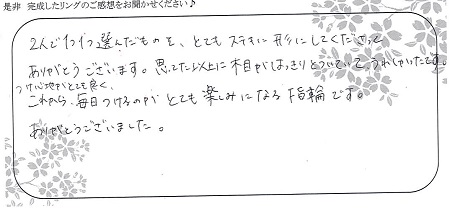 是非 完成したリングのご感想をお聞かせください♪
2人で1つ1つ選んだものを、とてもステキに形にしてくださって
ありがとうございます。思ってた以上に木目がはっきりとついていて、うれしかったです。
つけ心地がとても良く、
これから、毎日つけるのがとても楽しみになる指輪です。
ありがとうございました。